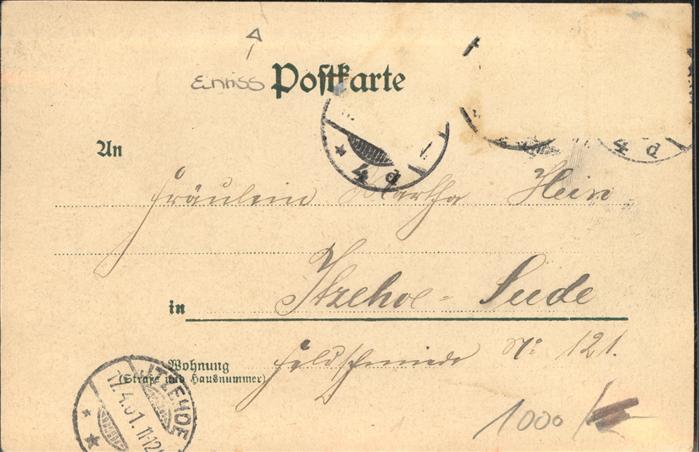 Einriss Postkarte
4 d
4 d
An
Fräulein Martha Hein
in Itzehoe-Sude
Wohnung
(Straße und Hausnummer)
Feldschmiede No: 121.
ITZEHOE
17.4.01.11-12
1000/